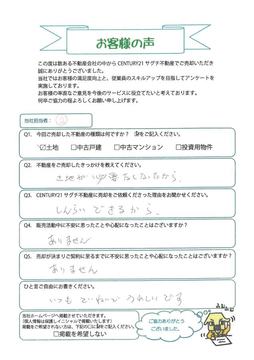 お客様の声
この度は数ある不動産会社の中からCENTURY21 サグチ不動産でご売却いただき
誠にありがとうございました。
当社ではお客様の満足度向上と、従業員のスキルアップを目指してアンケートを
実施しております。
お客様の率直なご意見を今後のサービスに役立てたいと考えております。
何卒ご協力の程よろしくお願い申し上げます。
当社担当者:
Q1. 今回ご売却した不動産の種類は何ですか? ☑をご記入ください。
☑土地 □中古戸建 □中古マンション □投資用物件
Q2. 不動産をご売却したきっかけを教えてください。
土地が必要なしなから
Q3. CENTURY21 サグチ不動産に売却をご依頼くださった理由をお聞かせください。
しんらいできるから。
Q4. 販売活動中に不安に思ったことや心配になったことはございますか?
ありません
Q5. 売却が決まりご契約に至るまでに不安に思ったことや心配になったことはございますか?
ありません
ひと言ご自由にお書きください。
いつもていねいでうれしいです
当社ホームページへ掲載させていただきます。
(個人情報は保護しイニシャルで掲載いたします)
掲載をご希望されない方は、下記の□に☑をご記入ください。
□掲載を希望しない
ご協力ありがとう
ございました。